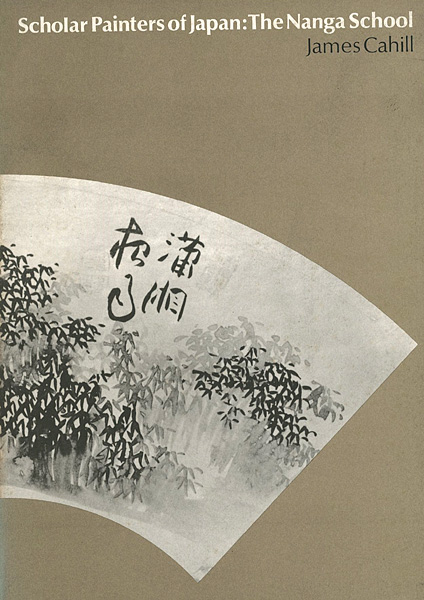 Scholar Painters of Japan: The Nanga School
James Cahill
瀟湘
夜雨